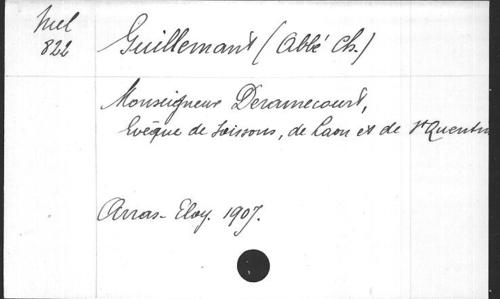 Mel
822
Guillemant (Abbé Ch.)
Monseigneur Deramecourt,
Evêque de Soissons, de Laon et de St Quentin
Arras - Eloy. 1907.